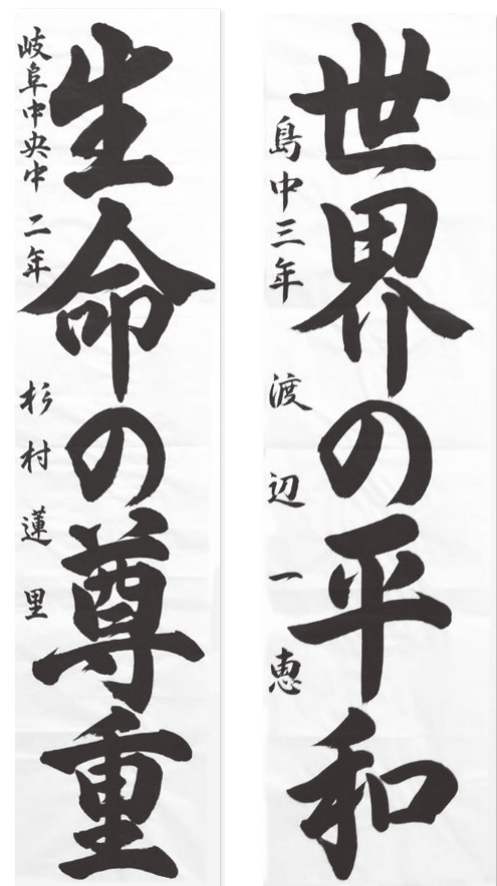 世界の平和
島中三年 渡辺一恵
生命の尊重
岐阜中央中 二年 杉村蓮里